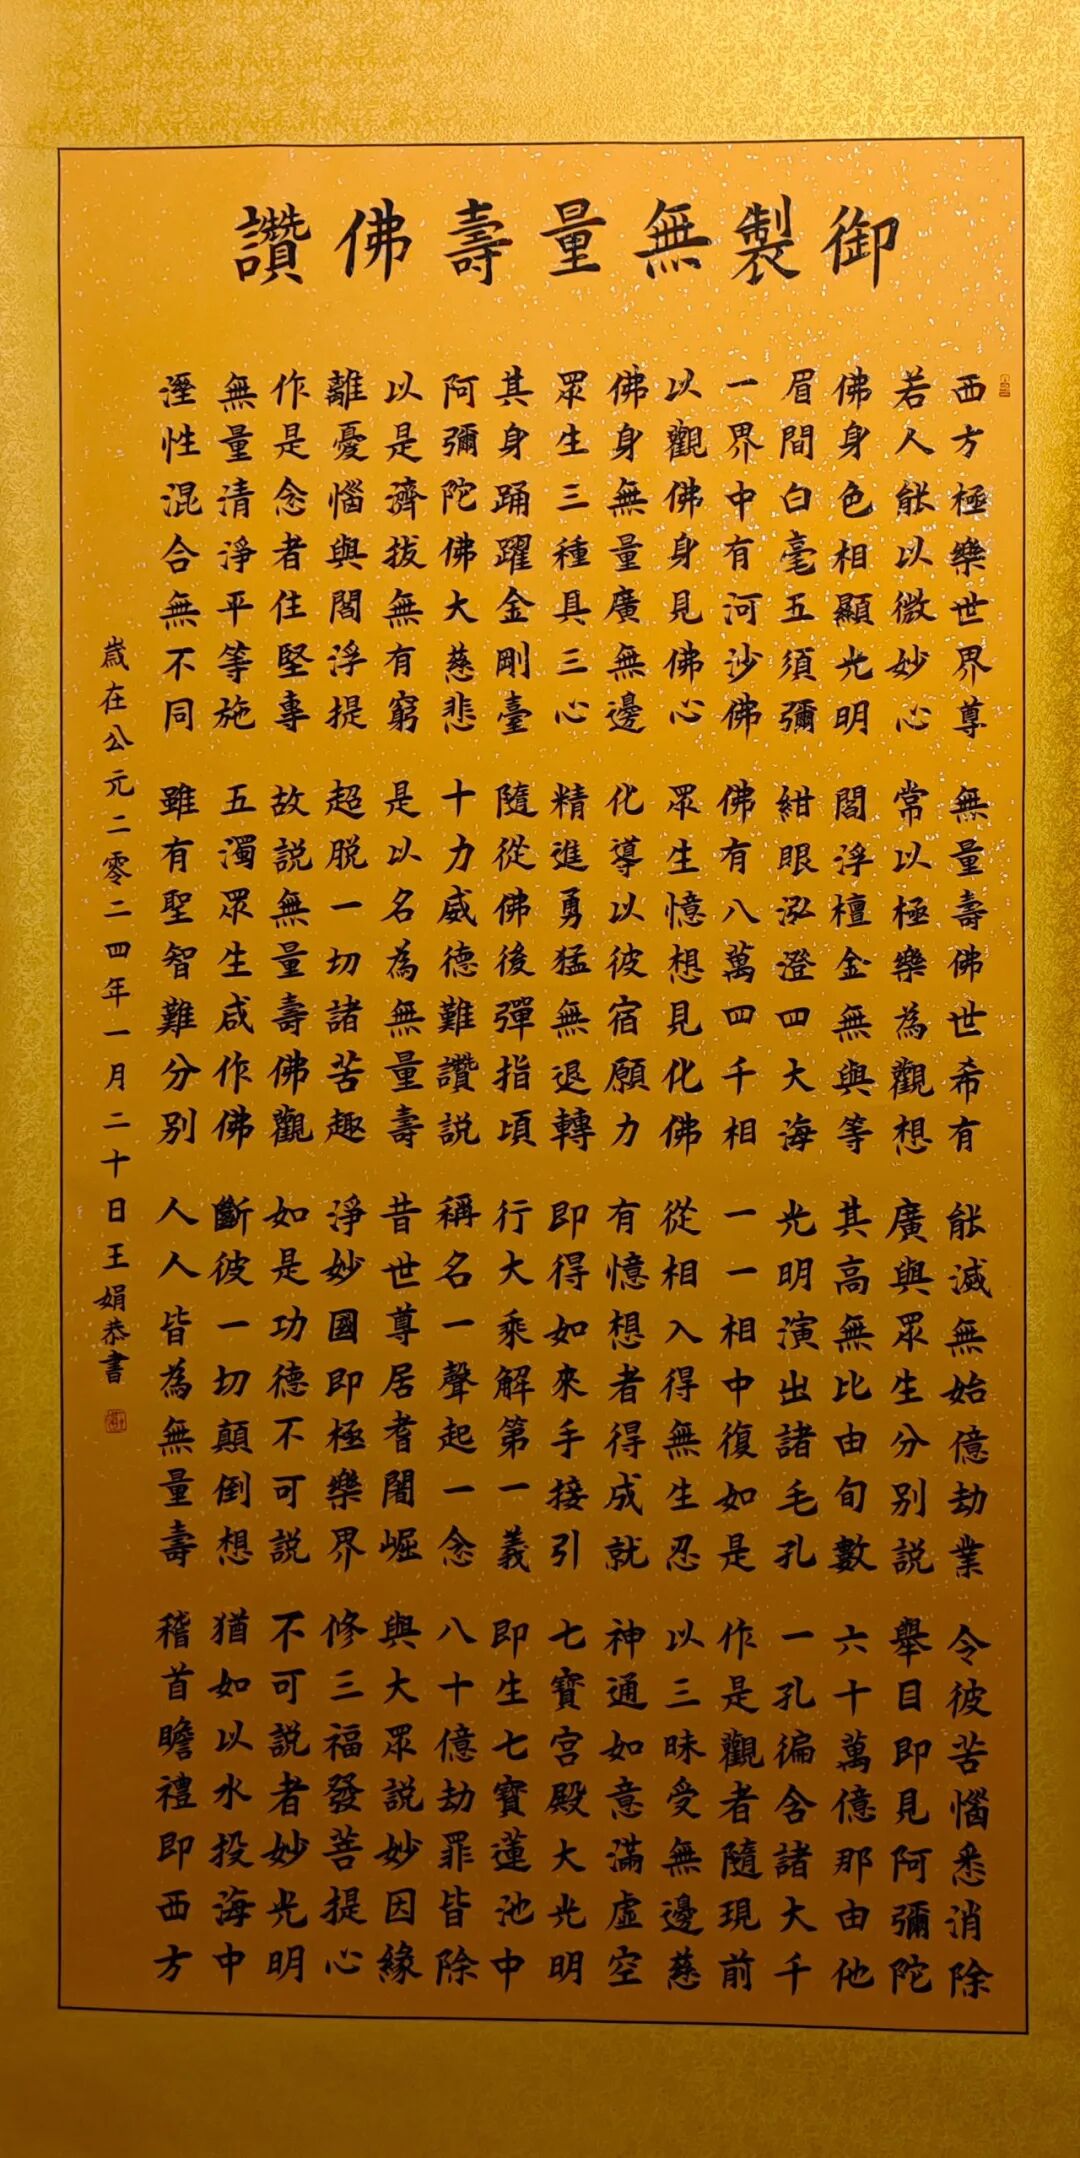 御製無量壽佛讚
西方極樂世界尊 無量壽佛世希有 能滅無始億劫業 令彼苦惱悉消除
若人能以微妙心 常以極樂為觀想 廣與眾生分別說 舉目即見阿彌陀
佛身色相顯光明 閻浮檀金無與等 其高無比由旬數 六十萬億那由他
眉間白毫五須彌 紺眼泓澄四大海 光明演出諸毛孔 一孔徧含諸大千
一界中有河沙佛 佛有八萬四千相 一一相中復如是 作是觀者隨現前
以觀佛身見佛心 眾生憶想見化佛 從相入得無生忍 以三昧受無邊慈
佛身無量廣無邊 化導以彼宿願力 有憶想者得成就 神通如意滿虛空
眾生三種具三心 精進勇猛無退轉 即得如來手接引 七寶宮殿大光明
其身踊躍金剛臺 隨從佛後彈指頃 行大乘解第一義 即生七寶蓮池中
阿彌陀佛大慈悲 十力威德難讚說 稱名一聲起一念 八十億劫罪皆除
以是濟拔無有窮 是以名為無量壽 昔世尊居耆闍崛 與大眾說妙因緣
離憂惱與閻浮提 超脫一切諸苦趣 淨妙國即極樂界 修三福發菩提心
作是念者住堅專 故說無量壽佛觀 如是功德不可說 不可說者妙光明
無量清淨平等施 五濁眾生咸作佛 斷彼一切顛倒想 猶如以水投海中
溼性混合無不同 雖有聖智難分別 人人皆為無量壽 稽首瞻禮即西方
歲在公元二零二四年一月二十日王娟恭書